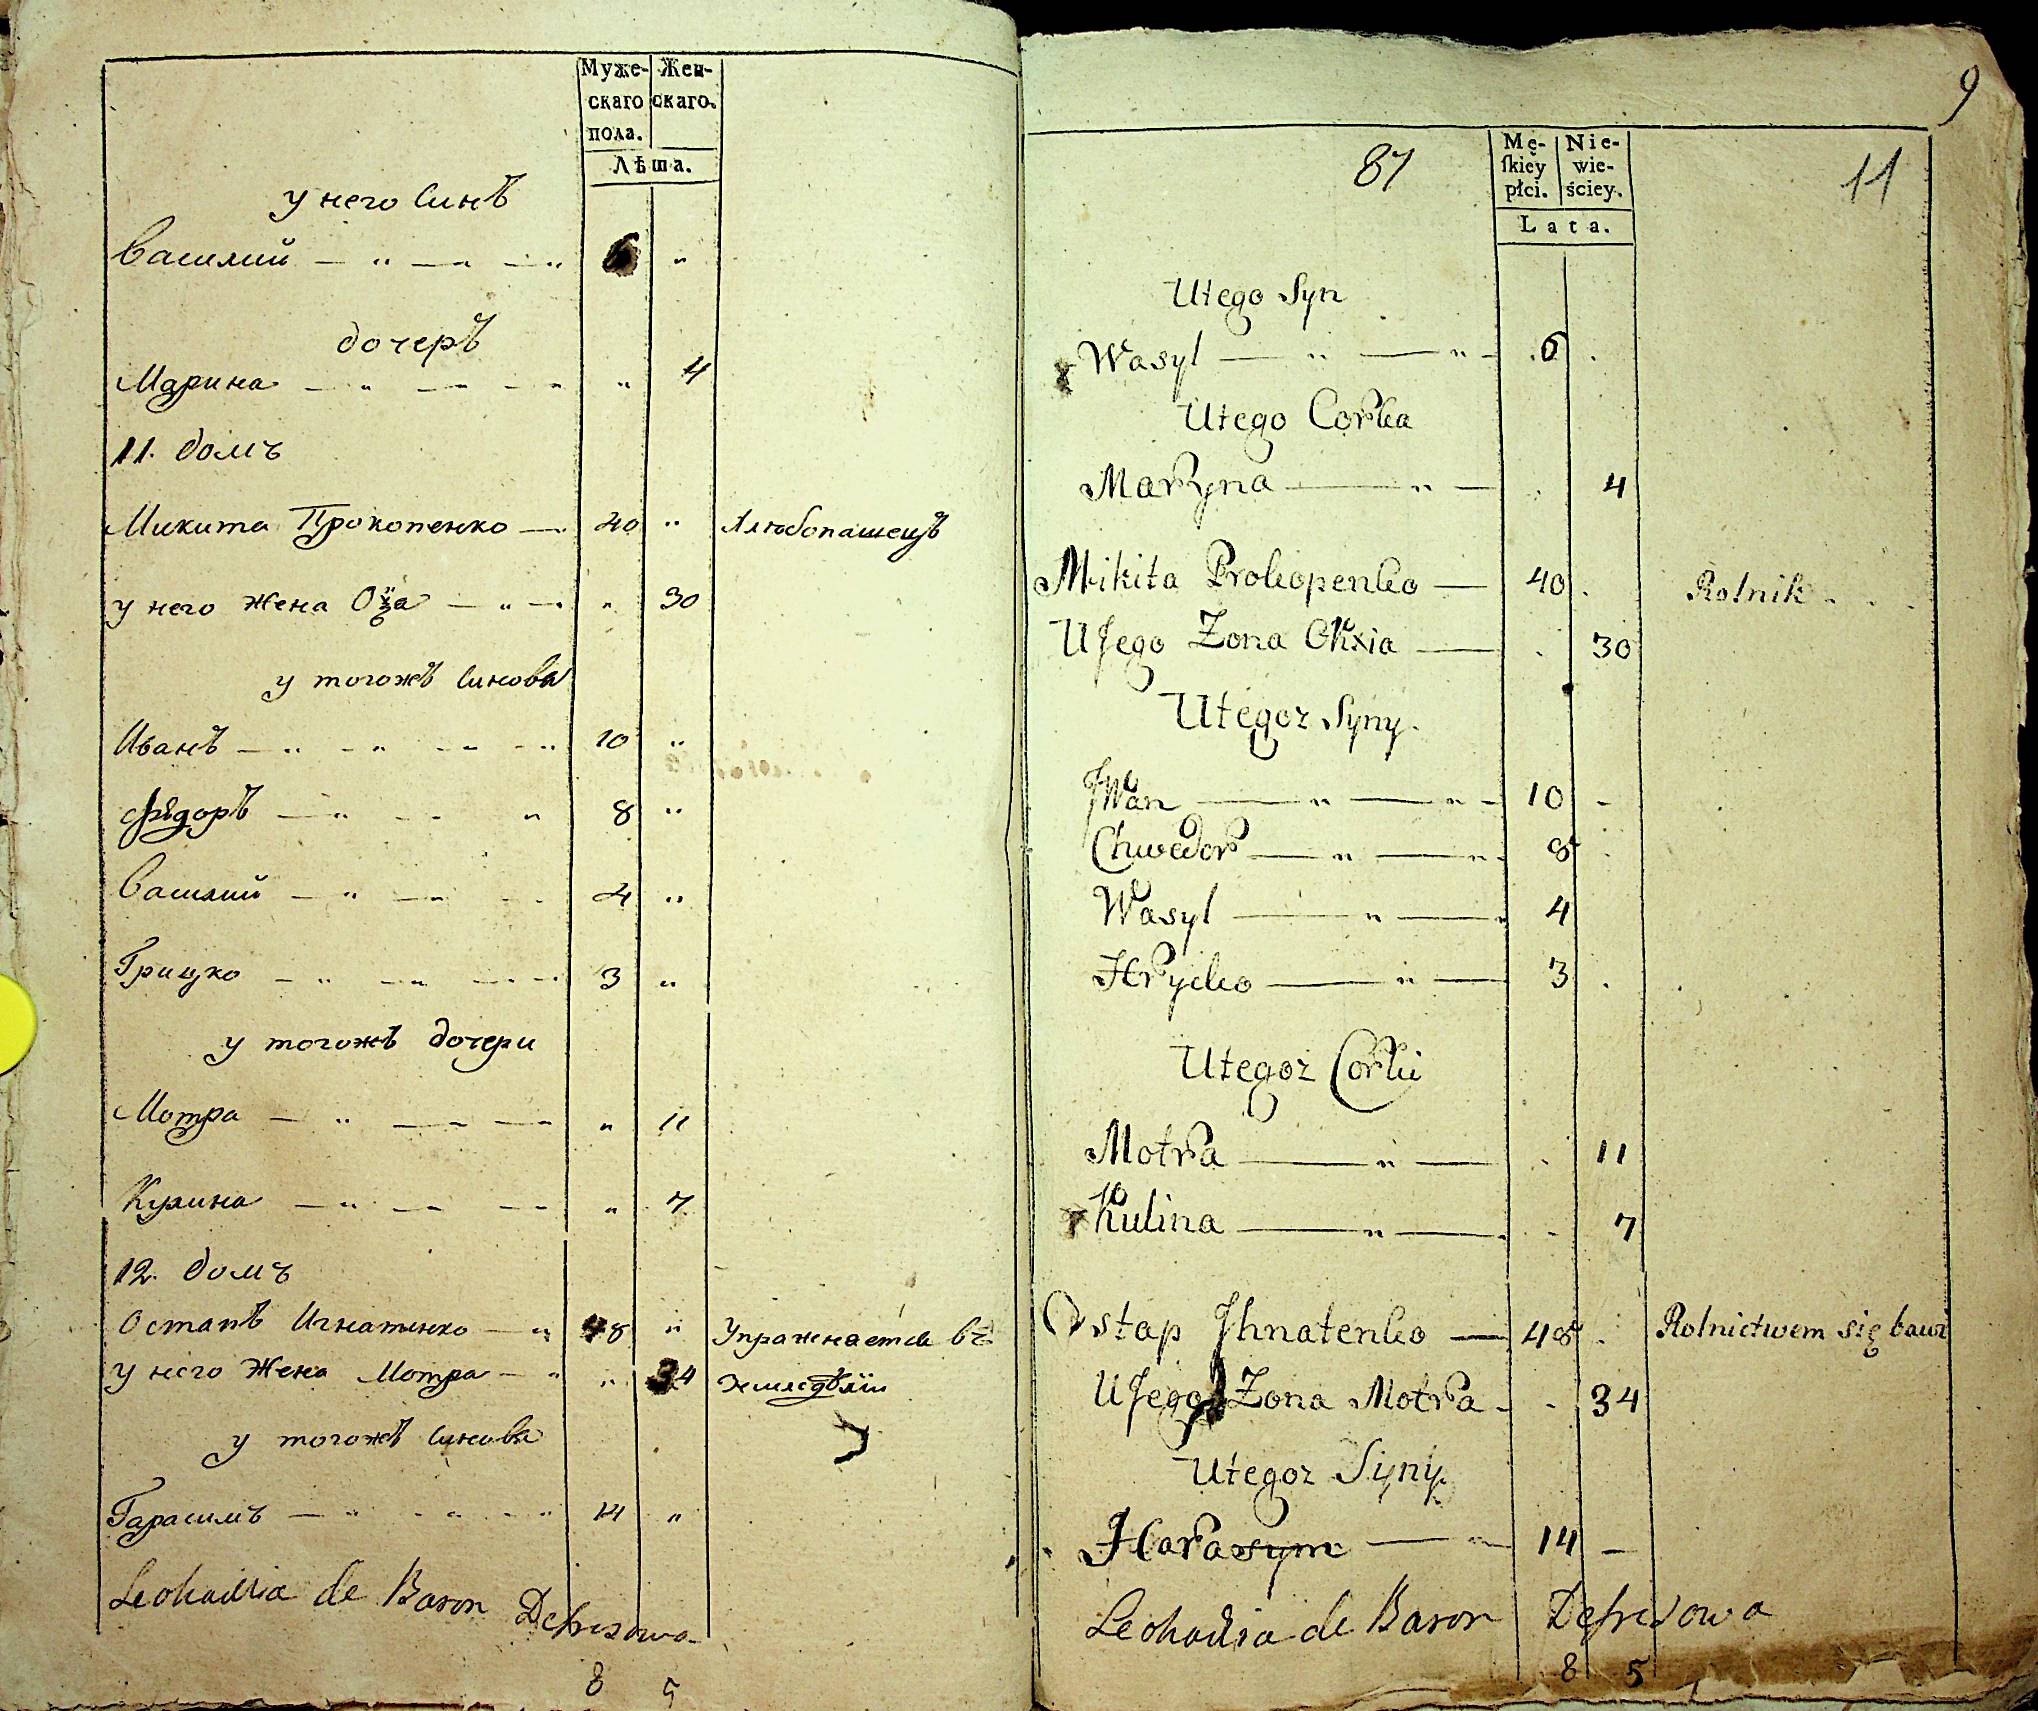 Муже- Жен-
скаго скаго.
пола.
Лѣта.
у него Синъ
Василий — " — " — " 6 "
дочеръ
Марина — " — " — " " 4
11. домъ
Микита Прокопенко — 40 " Хлѣбопашецъ
у него жена — " — " 30
у тогожъ Синова
Иванъ — " — " — " — " 10 "
Ѳѣдоръ — " — — " 8 "
Василий — " — " — 4 "
Грицко — " — " — " 3 "
у тогожъ дочери
Мотра — " — " — " " 11
Кулина — " — " — " " 7
12. домъ
Остапъ Игнатенко — " 48 " Упражняется въ
у него Жена Мотра — " " 34 земледѣлїи
у тогожъ Синова
Гарасимъ — " — " — " 14 "
Leokadia de Baron Defrezowa
8 5
9
87 11
Mę- Nie-
ſkiey wie-
płci. ściey.
Lata.
Utego Syn
Wasyl — " — " — 6 .
Utego Corka
Maryna — " — . 4
Mikita Prokopenko — 40 . Rolnik . . .
UJego Zona Okxia — . 30
Utegoz Syny.
Jwan — " — " — 10 -
Chwedor — " — " - 8 .
Wasyl — " — " 4
Hrycko — " — 3 .
Utegoz Corki
Motra — " — . 11
Kulina — " — . - 7
Ostap Jhnatenko — 48 . Rolnictwem się bawi
UJego Zona Motra - - 34
Utegoz Syny
Harasym — " 14 —
Leokadia de Baron Defrezowa
8 5